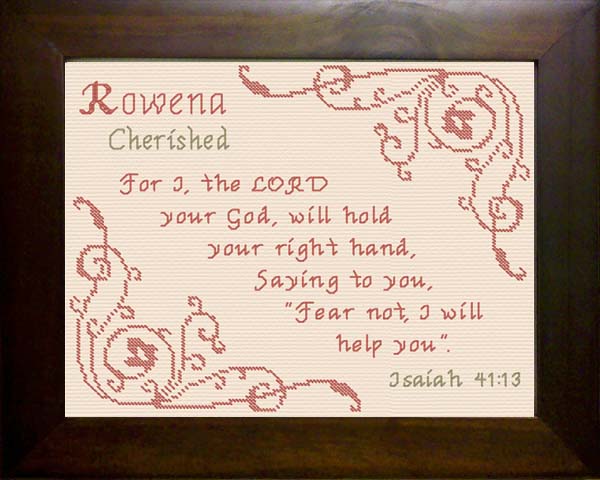 Rowena
Cherished
For I, the LORD
your God, will hold
your right hand,
Saying to you,
"Fear not, I will
help you".
Isaiah 41:13